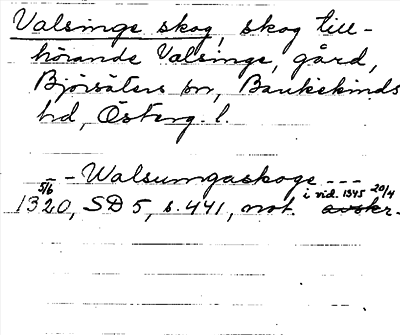 Valsinge skog, skog till-
hörande Valsinge, gård,
Björsäters sn, Bankekinds
hd, Österg. l.
- - Walsumgaskoge - - -
5/6 1320, SD 5, s. 441, not. i vid. 1345 20/4 avskr.